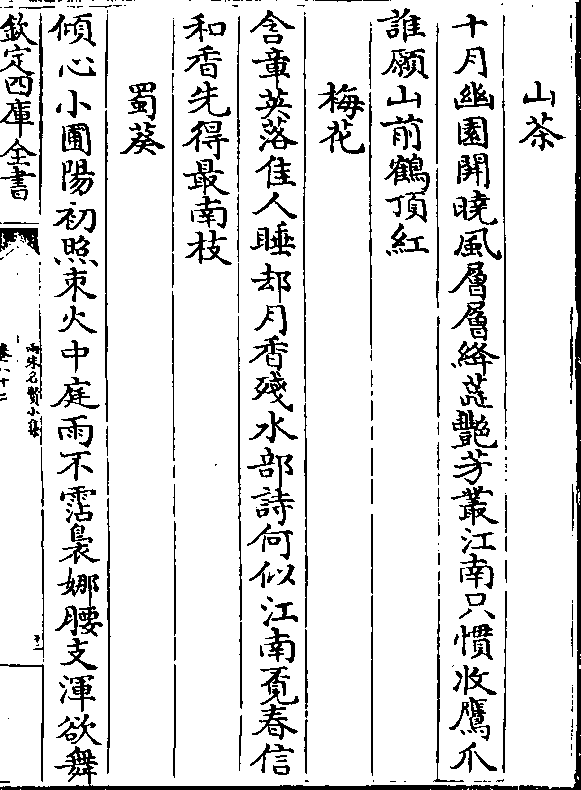 山茶
十月幽園開曉風層層絳蕋艷芳叢江南只慣收鷹爪
誰願山前鶴頂紅
梅花
含章英落佳人睡却月香殘水部詩何似江南覓春信
和香先得最南枝
蜀葵
傾心小圃陽初照朿火中庭雨不霑裊娜腰支渾欲舞
欽定四庫全書
兩宋名賢小集